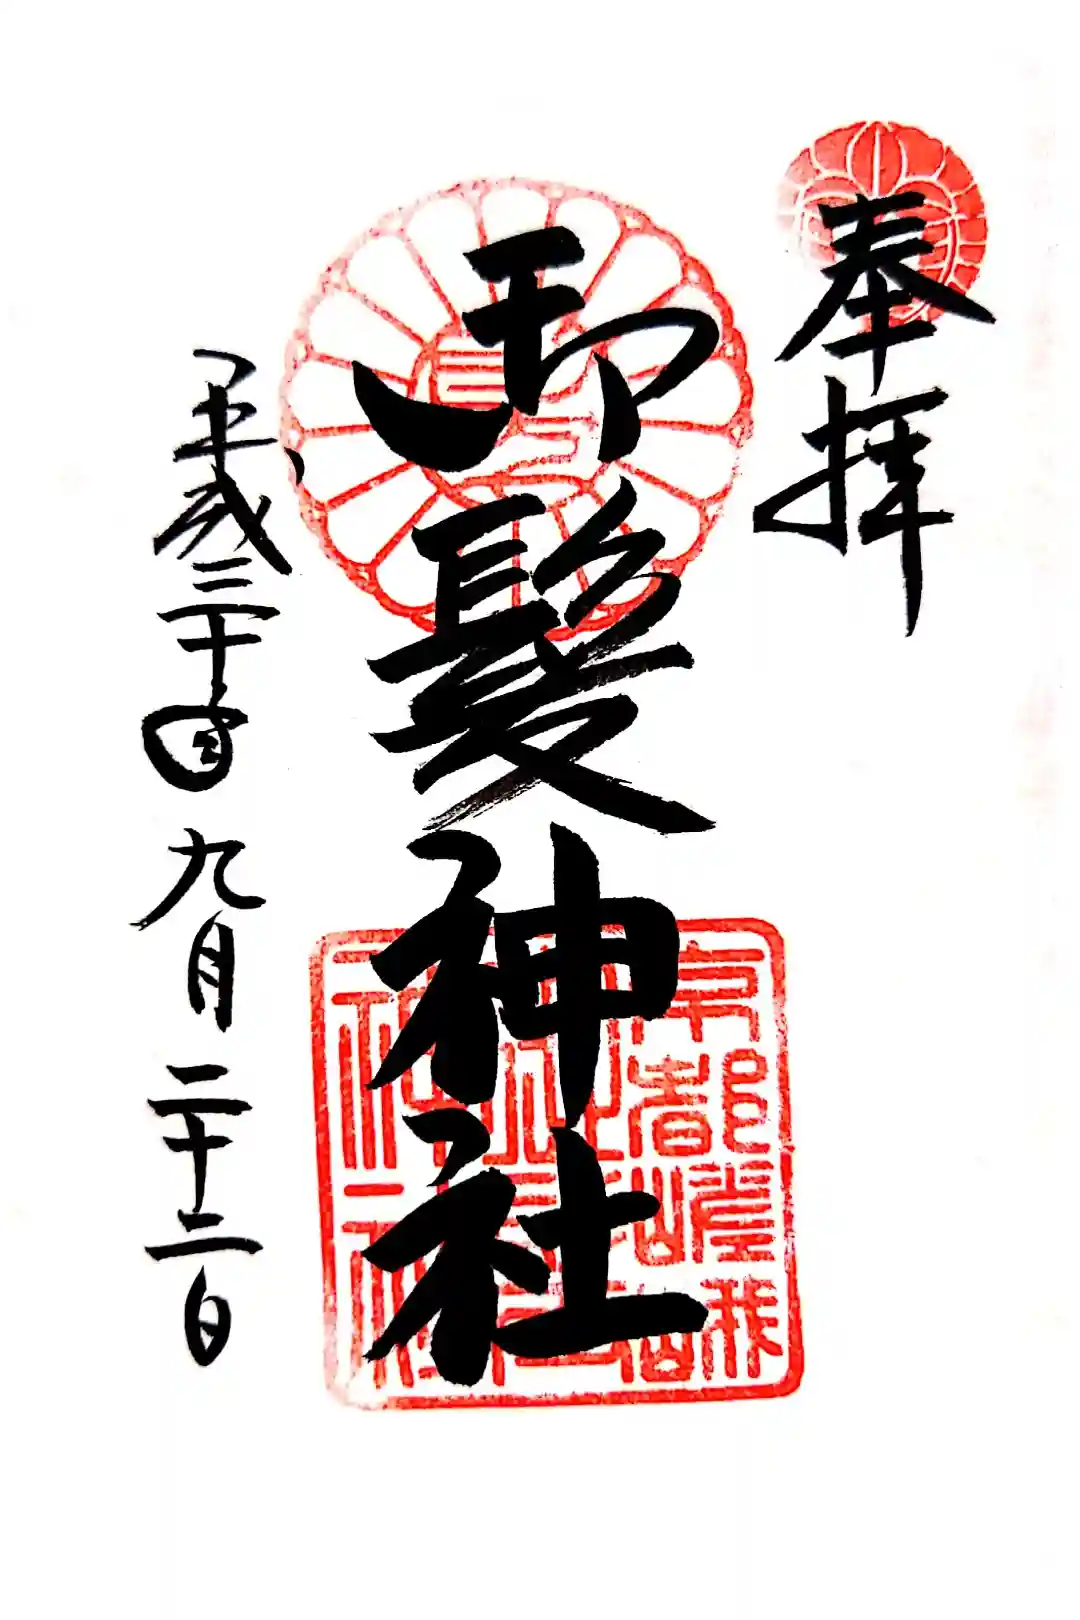 奉拝
御髪神社
平成三十年九月二十二日
京都嵯峨
神社